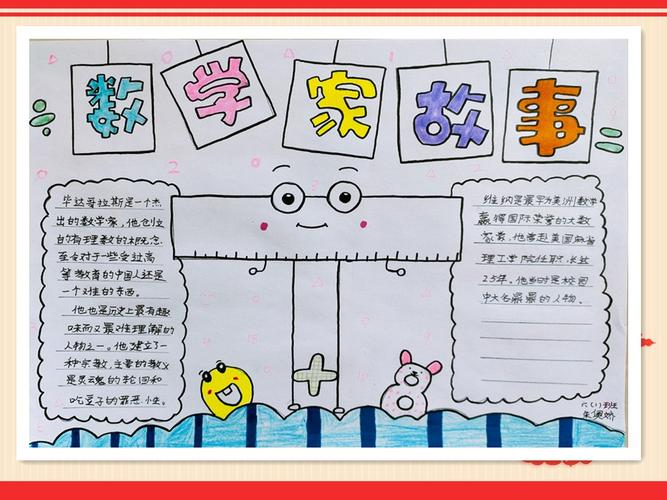 数学家故事
毕达哥拉斯是一个杰
出的数学家，他创立
的有理数的概念
至今对于一些受过高
等教育的中国人还是
一个对性的东西。
他也是历史上最有趣
味而又最难理解的
人物之一。他建立了一
种宗教，主要的教义
是灵魂的轮回和
吃豆子的罪恶性。
维纳是最早为美洲数学
赢得国际荣誉的大数
学家，他曾赴美国麻省
理工学院任职，长达
25年。他当时是校园
中大名鼎鼎的人物。
六(1)班